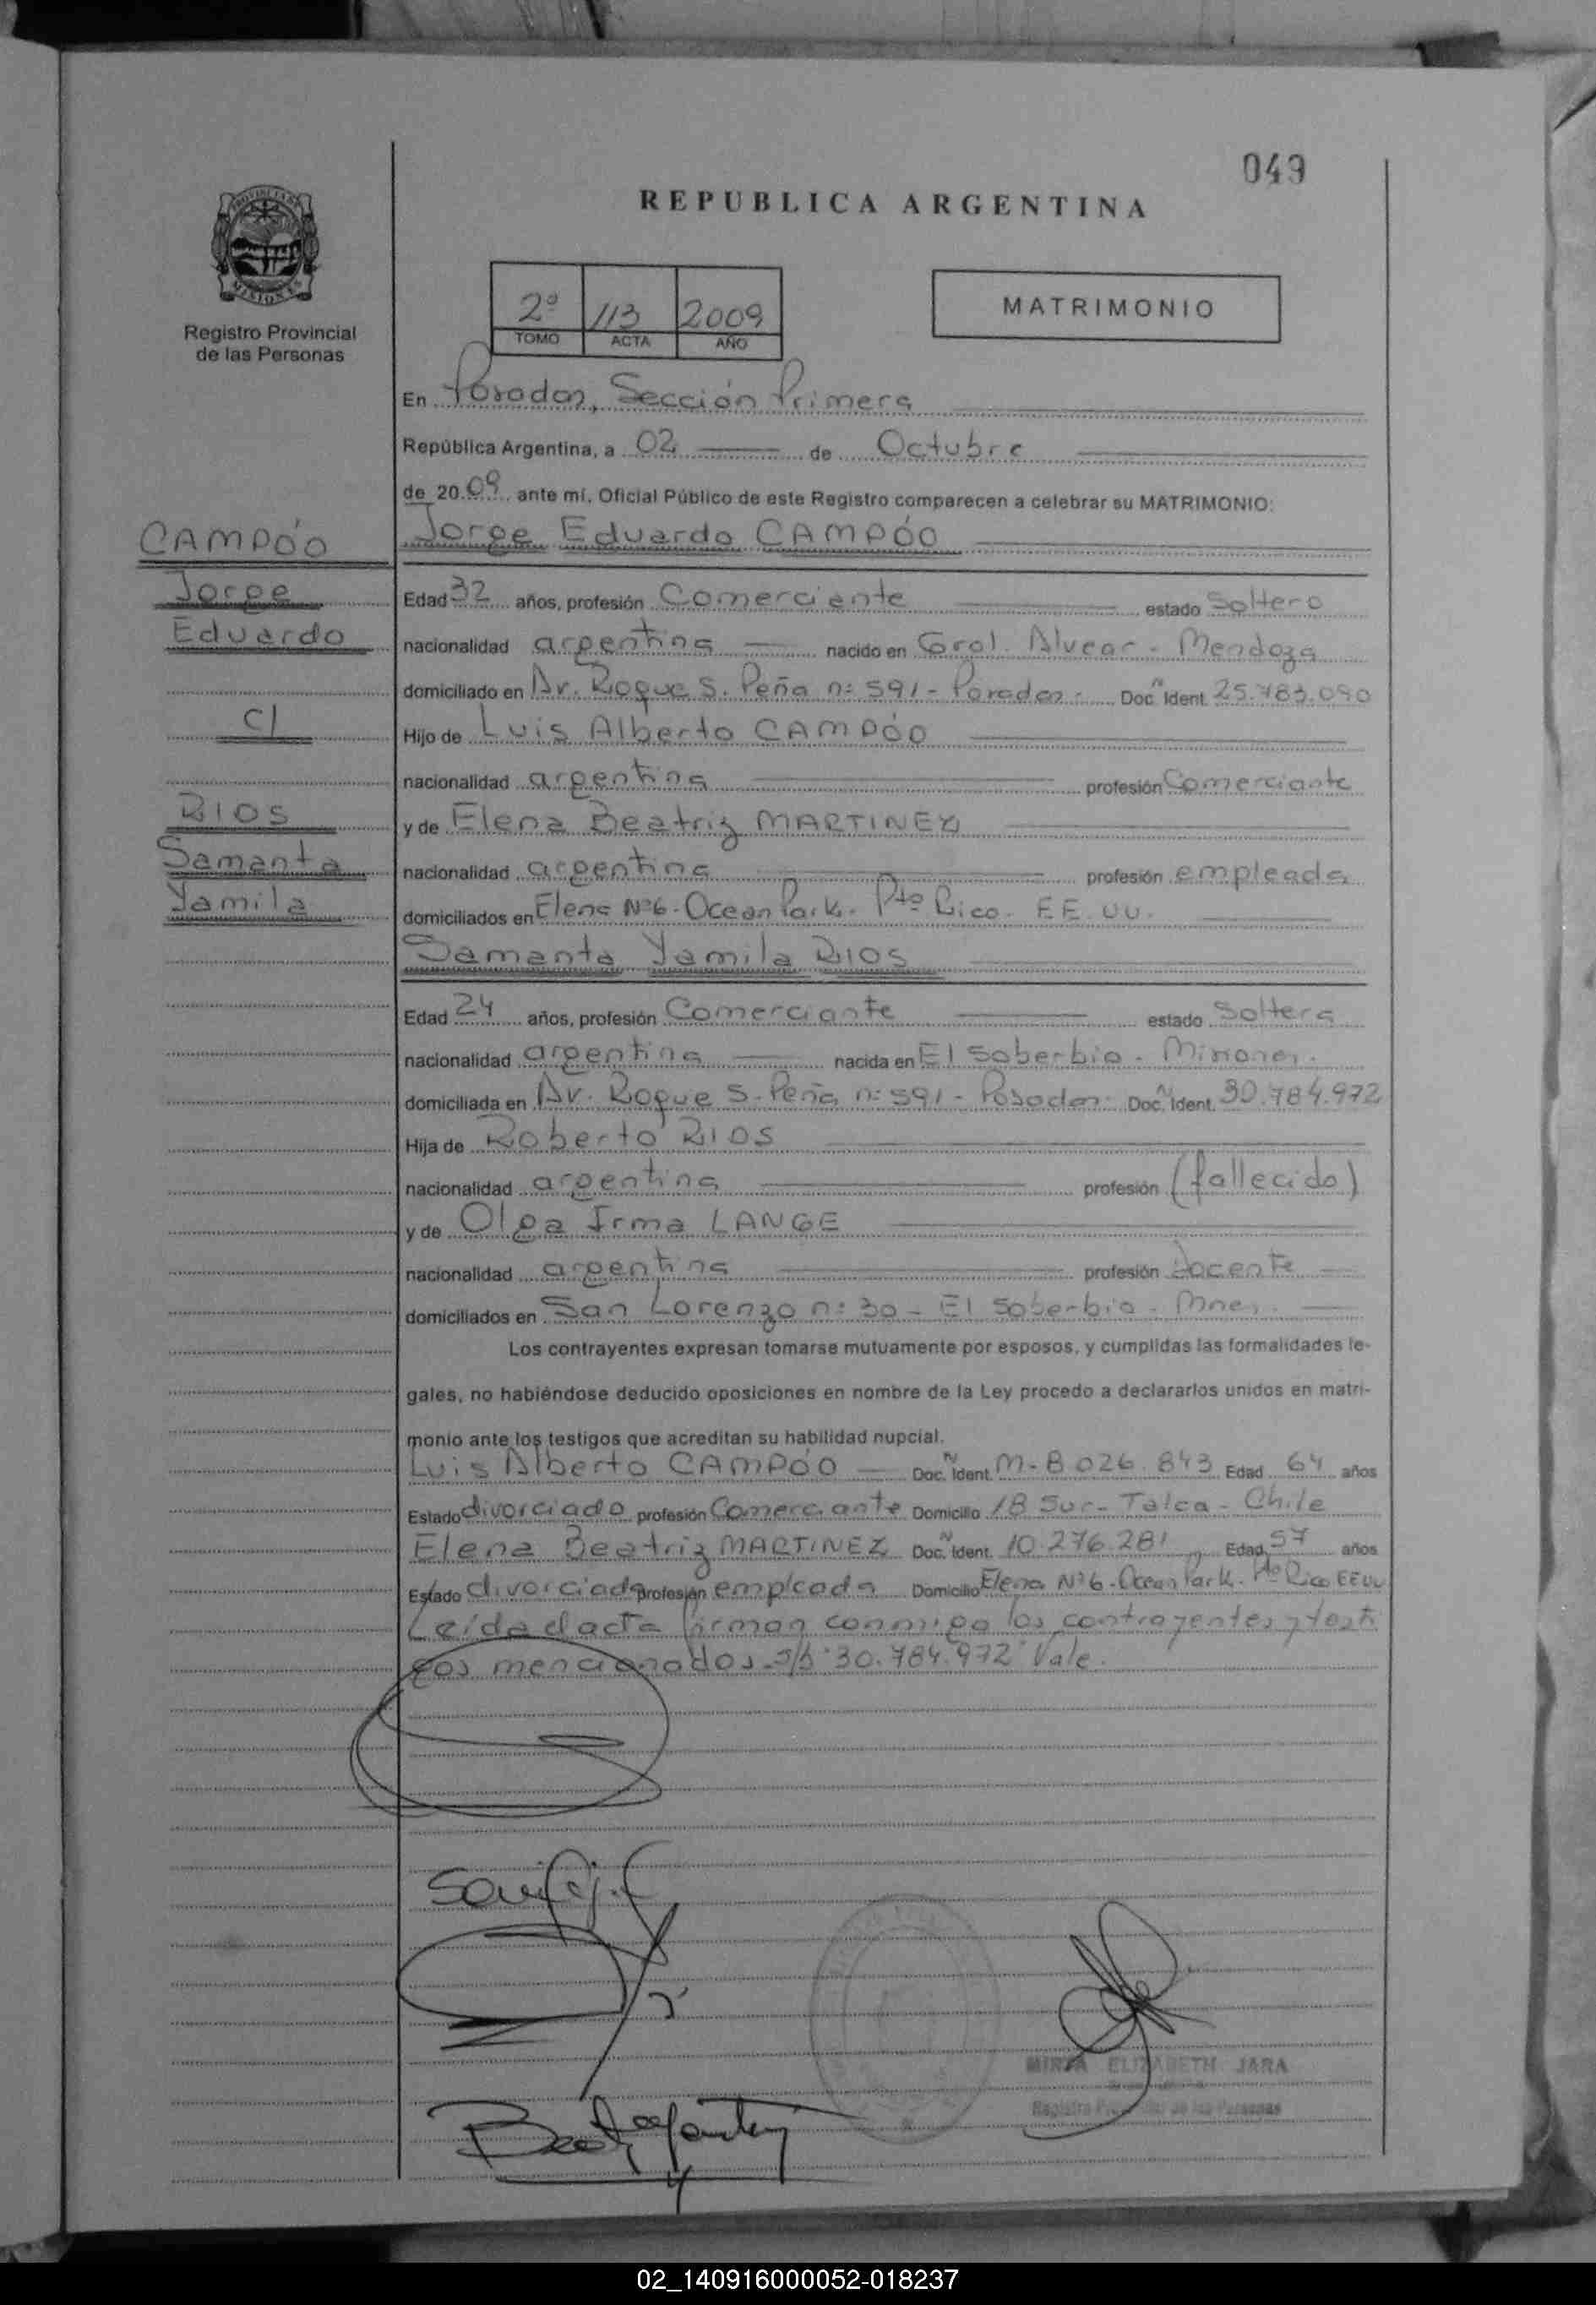 049
REPUBLICA ARGENTINA
PROVINCIA DE
MISIONES
Registro Provincial
de las Personas
2º 113 2009
TOMO ACTA AÑO
MATRIMONIO
En Posadas, Sección Primera
República Argentina, a 02 de Octubre
de 2009 ante mí, Oficial Público de este Registro comparecen a celebrar su MATRIMONIO:
CAMPÓO
Jorge
Eduardo
C/
RIOS
Samanta
Yamila
Jorge Eduardo CAMPÓO
Edad 32 años, profesión Comerciante estado Soltero
nacionalidad argentina nacido en Gral. Alvear - Mendoza
domiciliado en Av. Roque S. Peña nº 591 - Posadas. Doc. Ñ Ident. 25.783.090
Hijo de Luis Alberto CAMPÓO
nacionalidad argentina profesión Comerciante
y de Elena Beatriz MARTINEZ
nacionalidad argentina profesión empleada
domiciliados en Elena Nº6 - Ocean Park - Pto Rico - EE.UU.
Samanta Yamila RIOS
Edad 24 años, profesión Comerciante estado Soltera
nacionalidad argentina nacida en El Soberbio - Misiones.
domiciliada en Av. Roque S. Peña nº 591 - Posadas. Doc. Ñ Ident. 30.784.972
Hija de Roberto RIOS
nacionalidad argentina profesión (fallecido)
y de Olga Irma LANGE
nacionalidad argentina profesión docente
domiciliados en San Lorenzo nº 30 - El Soberbio - Mnes.
Los contrayentes expresan tomarse mutuamente por esposos, y cumplidas las formalidades le-
gales, no habiéndose deducido oposiciones en nombre de la Ley procedo a declararlos unidos en matri-
monio ante los testigos que acreditan su habilidad nupcial.
Luis Alberto CAMPÓO Doc. Ñ Ident. M-8.026.843 Edad 64 años
Estado divorciado profesión Comerciante Domicilio 18 Sur - Talca - Chile
Elena Beatriz MARTINEZ Doc. Ñ Ident. 10.276.281 Edad 57 años
Estado divorciada profesión empleada Domicilio Elena Nº6 - Ocean Park - Pto Rico EEUU
Leída el acta firman conmigo los contrayentes y testi
gos mencionados. s/b "30.784.972" Vale.
MIRTA ELIZABETH JARA
Registro Provincial de las Personas
02_140916000052-018237